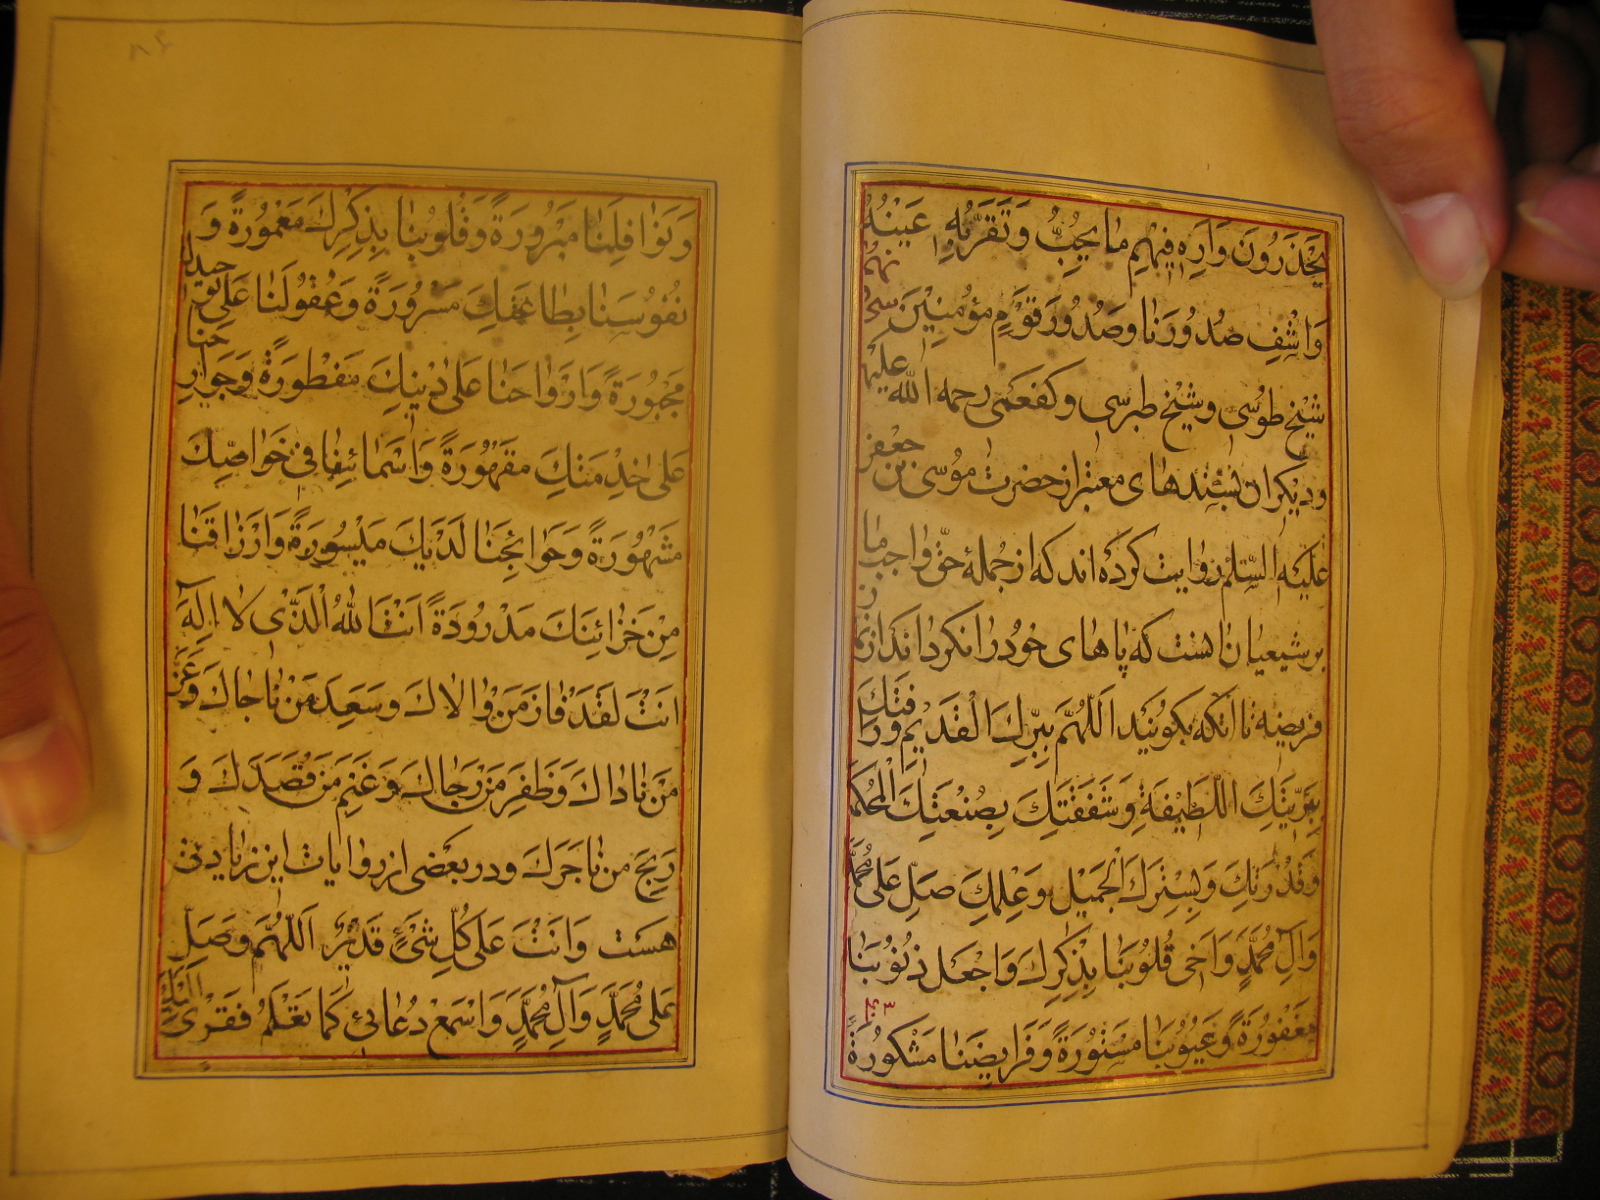 یحذرون واره فیهم ما یحب وتقر به عینه
نهم
واشف صدورنا وصدور قوم مؤمنین
شیخ طوسی وشیخ طبرسی وکفعمی رحمه الله علیهم
ودیکران بسندهای معتبر از حضرت موسی بن جعفر
علیه السلم روایت کرده اند که از جملۀ حق واجب ما
بر شیعیان انست که پاهای خود را نکردانند از نما
ز
فریضه تا انکه بکویند اللهم ببرك القدیم ورافتك
ببریتك اللطیفة وشفقتك بصنعتك المحکمة
وقدرتك وبسترك الجمیل وعلمك صل علی محمد
وآل محمد واحی قلوبنا بذکرك واجعل ذنوبنا
مغفورة وعیوبنا مستورة وفرایضنا مشکورة
۸۶
ونوافلنا مبرورة وقلوبنا بذکرك معمورة و
نفوسنا بطاعتك مسرورة وعقولنا علی توحیدك
مجبورة وارواحنا علی دینك مفطورة وجوارحنا
علی خدمتك مقهورة واسمائنا فی خواصك
مشهورة وحوایجنا لدیك میسورة وارزاقنا
من خزائنك مدرورة انت الله الذی لا اله
انت لقد فاز من والاك وسعد من ناجاك وعز
من ناداك وظفر من رجاك وغنم من قصدك و
ربح من تاجرك ودر بعضی از روایات این زیادتی
هست وانت علی کل شیء قدیر اللهم وصل
علی محمد وآل محمد واسمع دعائی کما تعلم فقری الیك